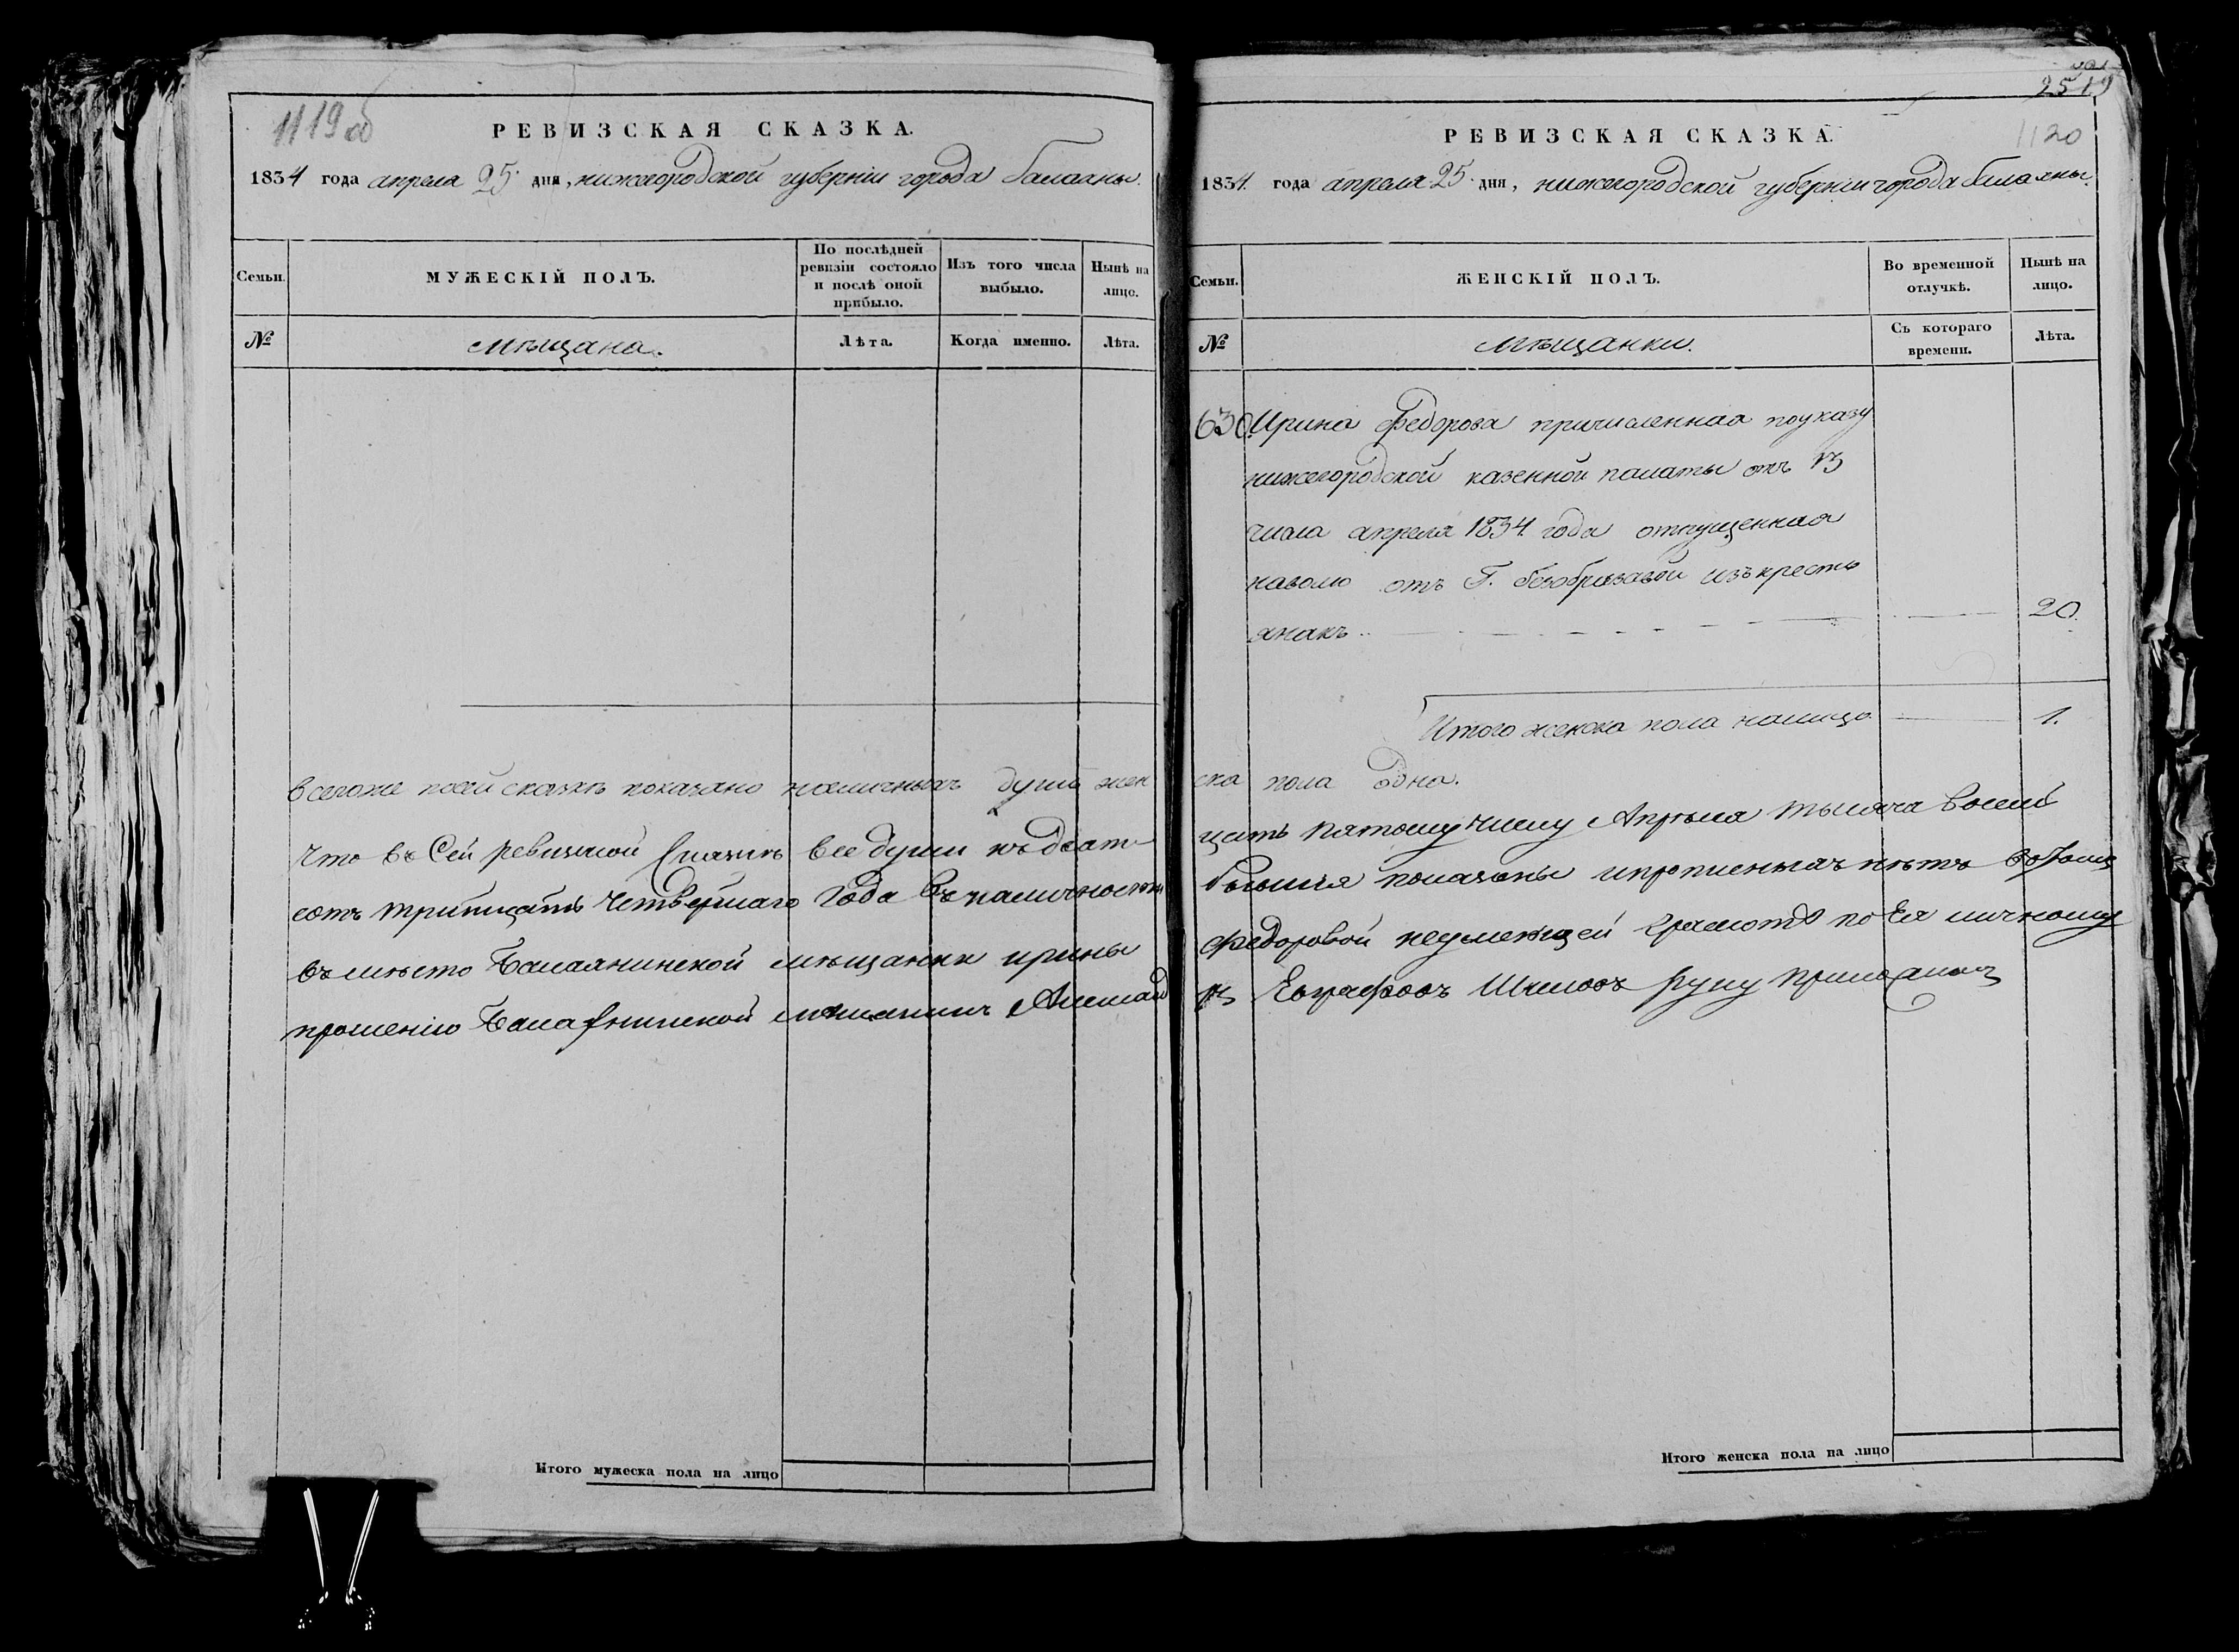 1119 об
РЕВИЗСКАЯ СКАЗКА.
1834 года апреля 25 дня, нижегородской губерніи города Балахны.
Семьи.
МУЖЕСКІЙ ПОЛЪ.
По послѣдней ревизіи состояло и послѣ оной прибыло.
Изъ того числа выбыло.
Нынѣ на лицо.
№
мѣщана.
Лѣта.
Когда именно.
Лѣта.
всегоже посей сказкѣ показано наличныхъ душъ жен
Что въ Сей ревизской Сказкѣ все души къ дват
сотъ тритцать четвертаго года въ наличности
въ мѣсто Балахнинской мѣщанки ирины
прошению Балахнинской мещанинъ
Итого мужеска пола на лицо
2519
1120
РЕВИЗСКАЯ СКАЗКА.
1834 года апреля 25 дня, нижегородской губерніи города Балахны.
Семьи.
ЖЕНСКІЙ ПОЛЪ.
Во временной отлучкѣ.
Нынѣ на лицо.
№
мѣщанки.
Съ котораго времени.
Лѣта.
630 Ирина Федорова причисленная поуказу
нижегородской казенной палаты отъ 13
числа апреля 1834 года отпущенная
наволю отъ Г. безобразовой изъ кресть
янакъ 20.
Итого женска пола налицо 1.
ска пола одна.
цать пятому числу Апрѣля тысяча восемь
бывшия показаны ипрописныхъ нѣтъ
Федоровой неумеющей грамотѣ по Ея личному
Евграфовъ руку приложилъ
Итого женска пола на лицо